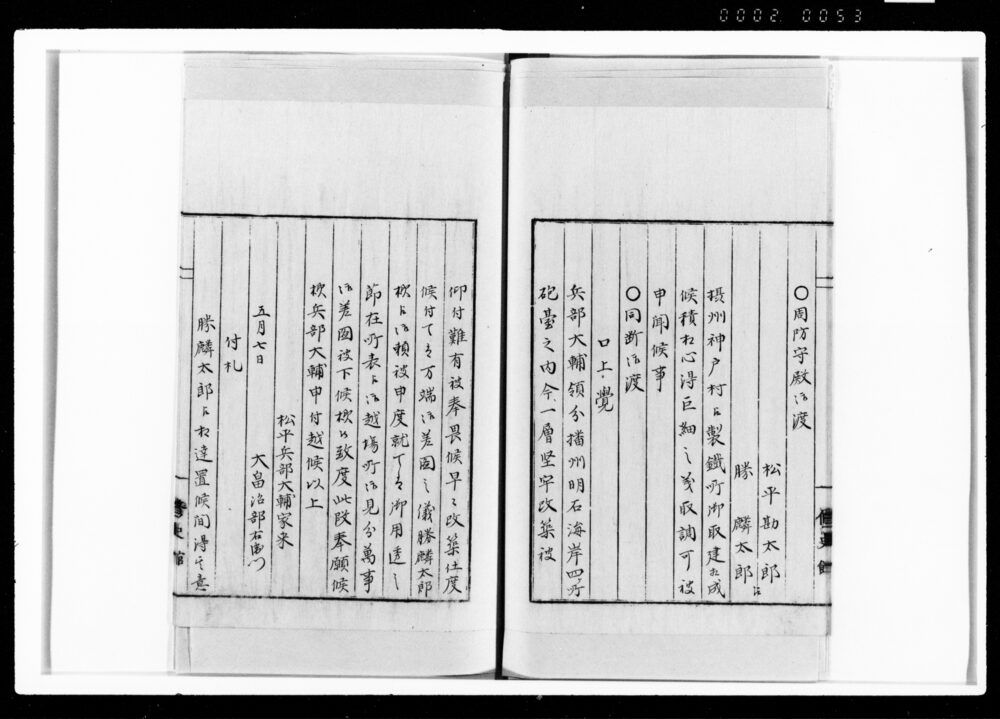 0002 0053
〇周防守殿御渡
松平勘太郎ゟ
勝麟太郎
摂州神戸村ゟ製鐵所御取建相成
候積相心得巨細之義取調可被
申聞候事
〇同断御渡
口上覺
兵部大輔領分播州明石海岸四ヶ所
砲臺之内今一層堅牢改築被
仰付難有被奉畏候早々改築仕度
候付てハ万端御差図之儀勝麟太郎
様ゟ御頼被申度就てハ御用透之
節在所表ゟ御越場所御見分萬事
御差図被下候様致度此段奉願候
様兵部大輔申付越候以上
松平兵部大輔家来
五月七日 大畠治部右衛門
付札
勝麟太郎ゟ相達置候間得其意
修史館
修史館